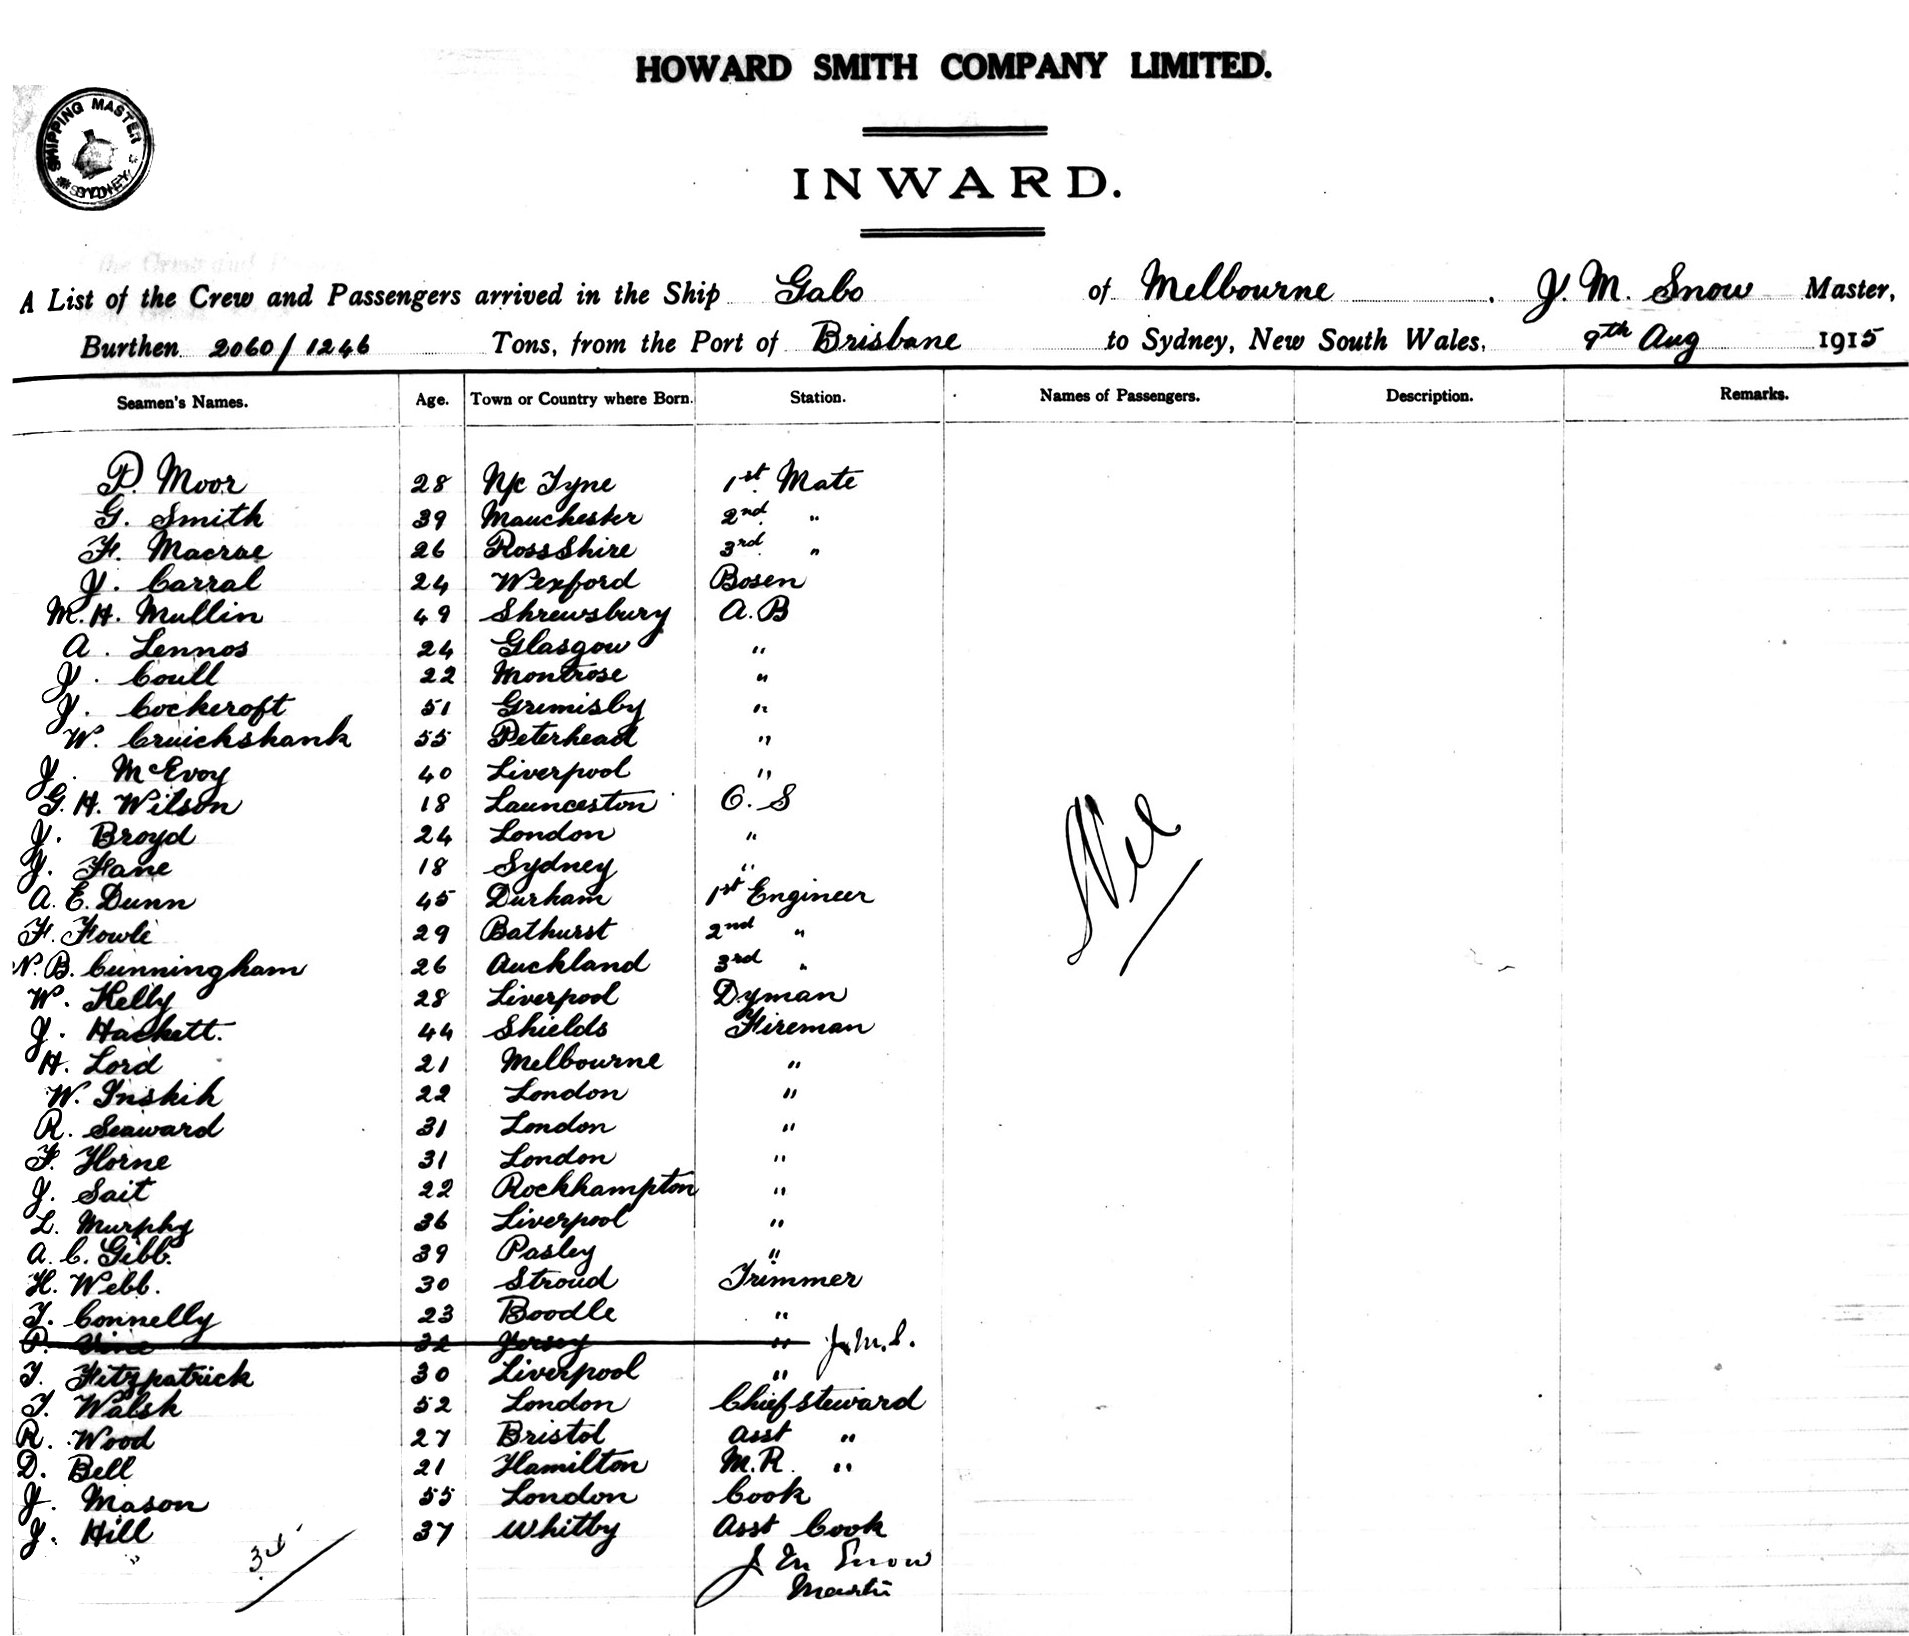 HOWARD SMITH COMPANY LIMITED.
SHIPPING MASTER
SYDNEY
INWARD.
A List of the Crew and Passengers arrived in the Ship Gabo of Melbourne J. M. Snow Master,
Burthen 2060/1246 Tons, from the Port of Brisbane to Sydney, New South Wales, 9th Aug 1915
Seamen's Names. Age. Town or Country where Born. Station. Names of Passengers. Description. Remarks.
P. Moor 28 N/c Tyne 1st Mate
G. Smith 39 Manchester 2nd "
F. Macrae 26 RossShire 3rd "
J. Carral 24 Wexford Bosen
M. H. Mullin 49 Shrewsbury A.B
A. Lennos 24 Glasgow "
J. Coull 22 Montrose "
J. Cockcroft 51 Gremisby "
W. Cruickshank 55 Peterhead "
J. McEvoy 40 Liverpool "
G. H. Wilson 18 Launceston O. S
J. Broyd 24 London "
J. Fane 18 Sydney "
A. E. Dunn 45 Durham 1st Engineer
F. Fowle 29 Bathurst 2nd "
N. B. Cunningham 26 Auckland 3rd "
W. Kelly 28 Liverpool Dyman
J. Hackett. 44 Shields Fireman
H. Lord 21 Melbourne "
W. Inskik 22 London "
R. Seaward 31 London "
F. Horne 31 London "
J. Sait 22 Rockhampton "
L. Murphy 36 Liverpool "
A. C. Gibb. 39 Pasley "
H. Webb. 30 Stroud Trimmer
T. Connelly 23 Boodle "
P. Vine 32 Jersey " J.M.S.
T. Fitzpatrick 30 Liverpool "
T. Walsh 52 London Chief steward
R. Wood 27 Bristol Asst "
D. Bell 21 Hamilton M.R. "
J. Mason 55 London Cook
J. Hill 37 Whitby Asst Cook
Nil
34
J M Snow
Master